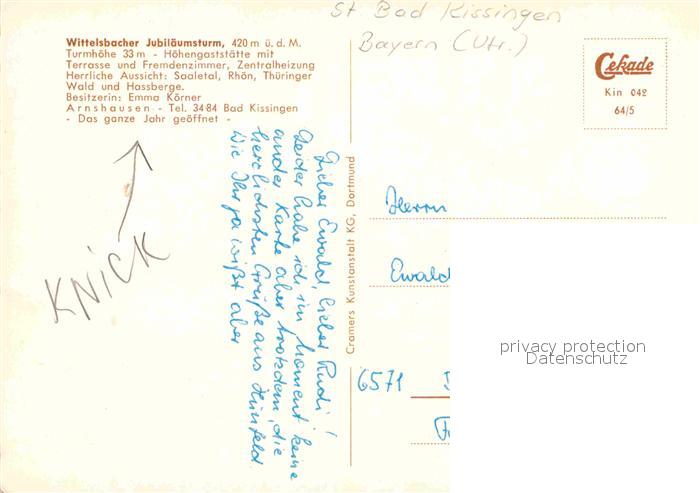 St Bad Kissingen
Bayern (Utr.)
Wittelsbacher Jubiläumsturm, 420 m ü. d. M.
Turmhöhe 33 m - Höhengaststätte mit
Terrasse und Fremdenzimmer, Zentralheizung
Herrliche Aussicht: Saaletal, Rhön, Thüringer
Wald und Hassberge.
Besitzerin: Emma Körner
Arnshausen - Tel. 3484 Bad Kissingen
- Das ganze Jahr geöffnet -
Cekade
Kin 042
64/5
KNICK
Lieber Ewald, lieber Rudi!
Leider habe ich im Moment keine
ander Karte aber trotzdem die
herzlichsten Grüße aus Hünfeld.
Wie Ihr ja wißt aber
Cramers Kunstanstalt KG, Dortmund
Herrn
Ewald
6571
privacy protection
Datenschutz